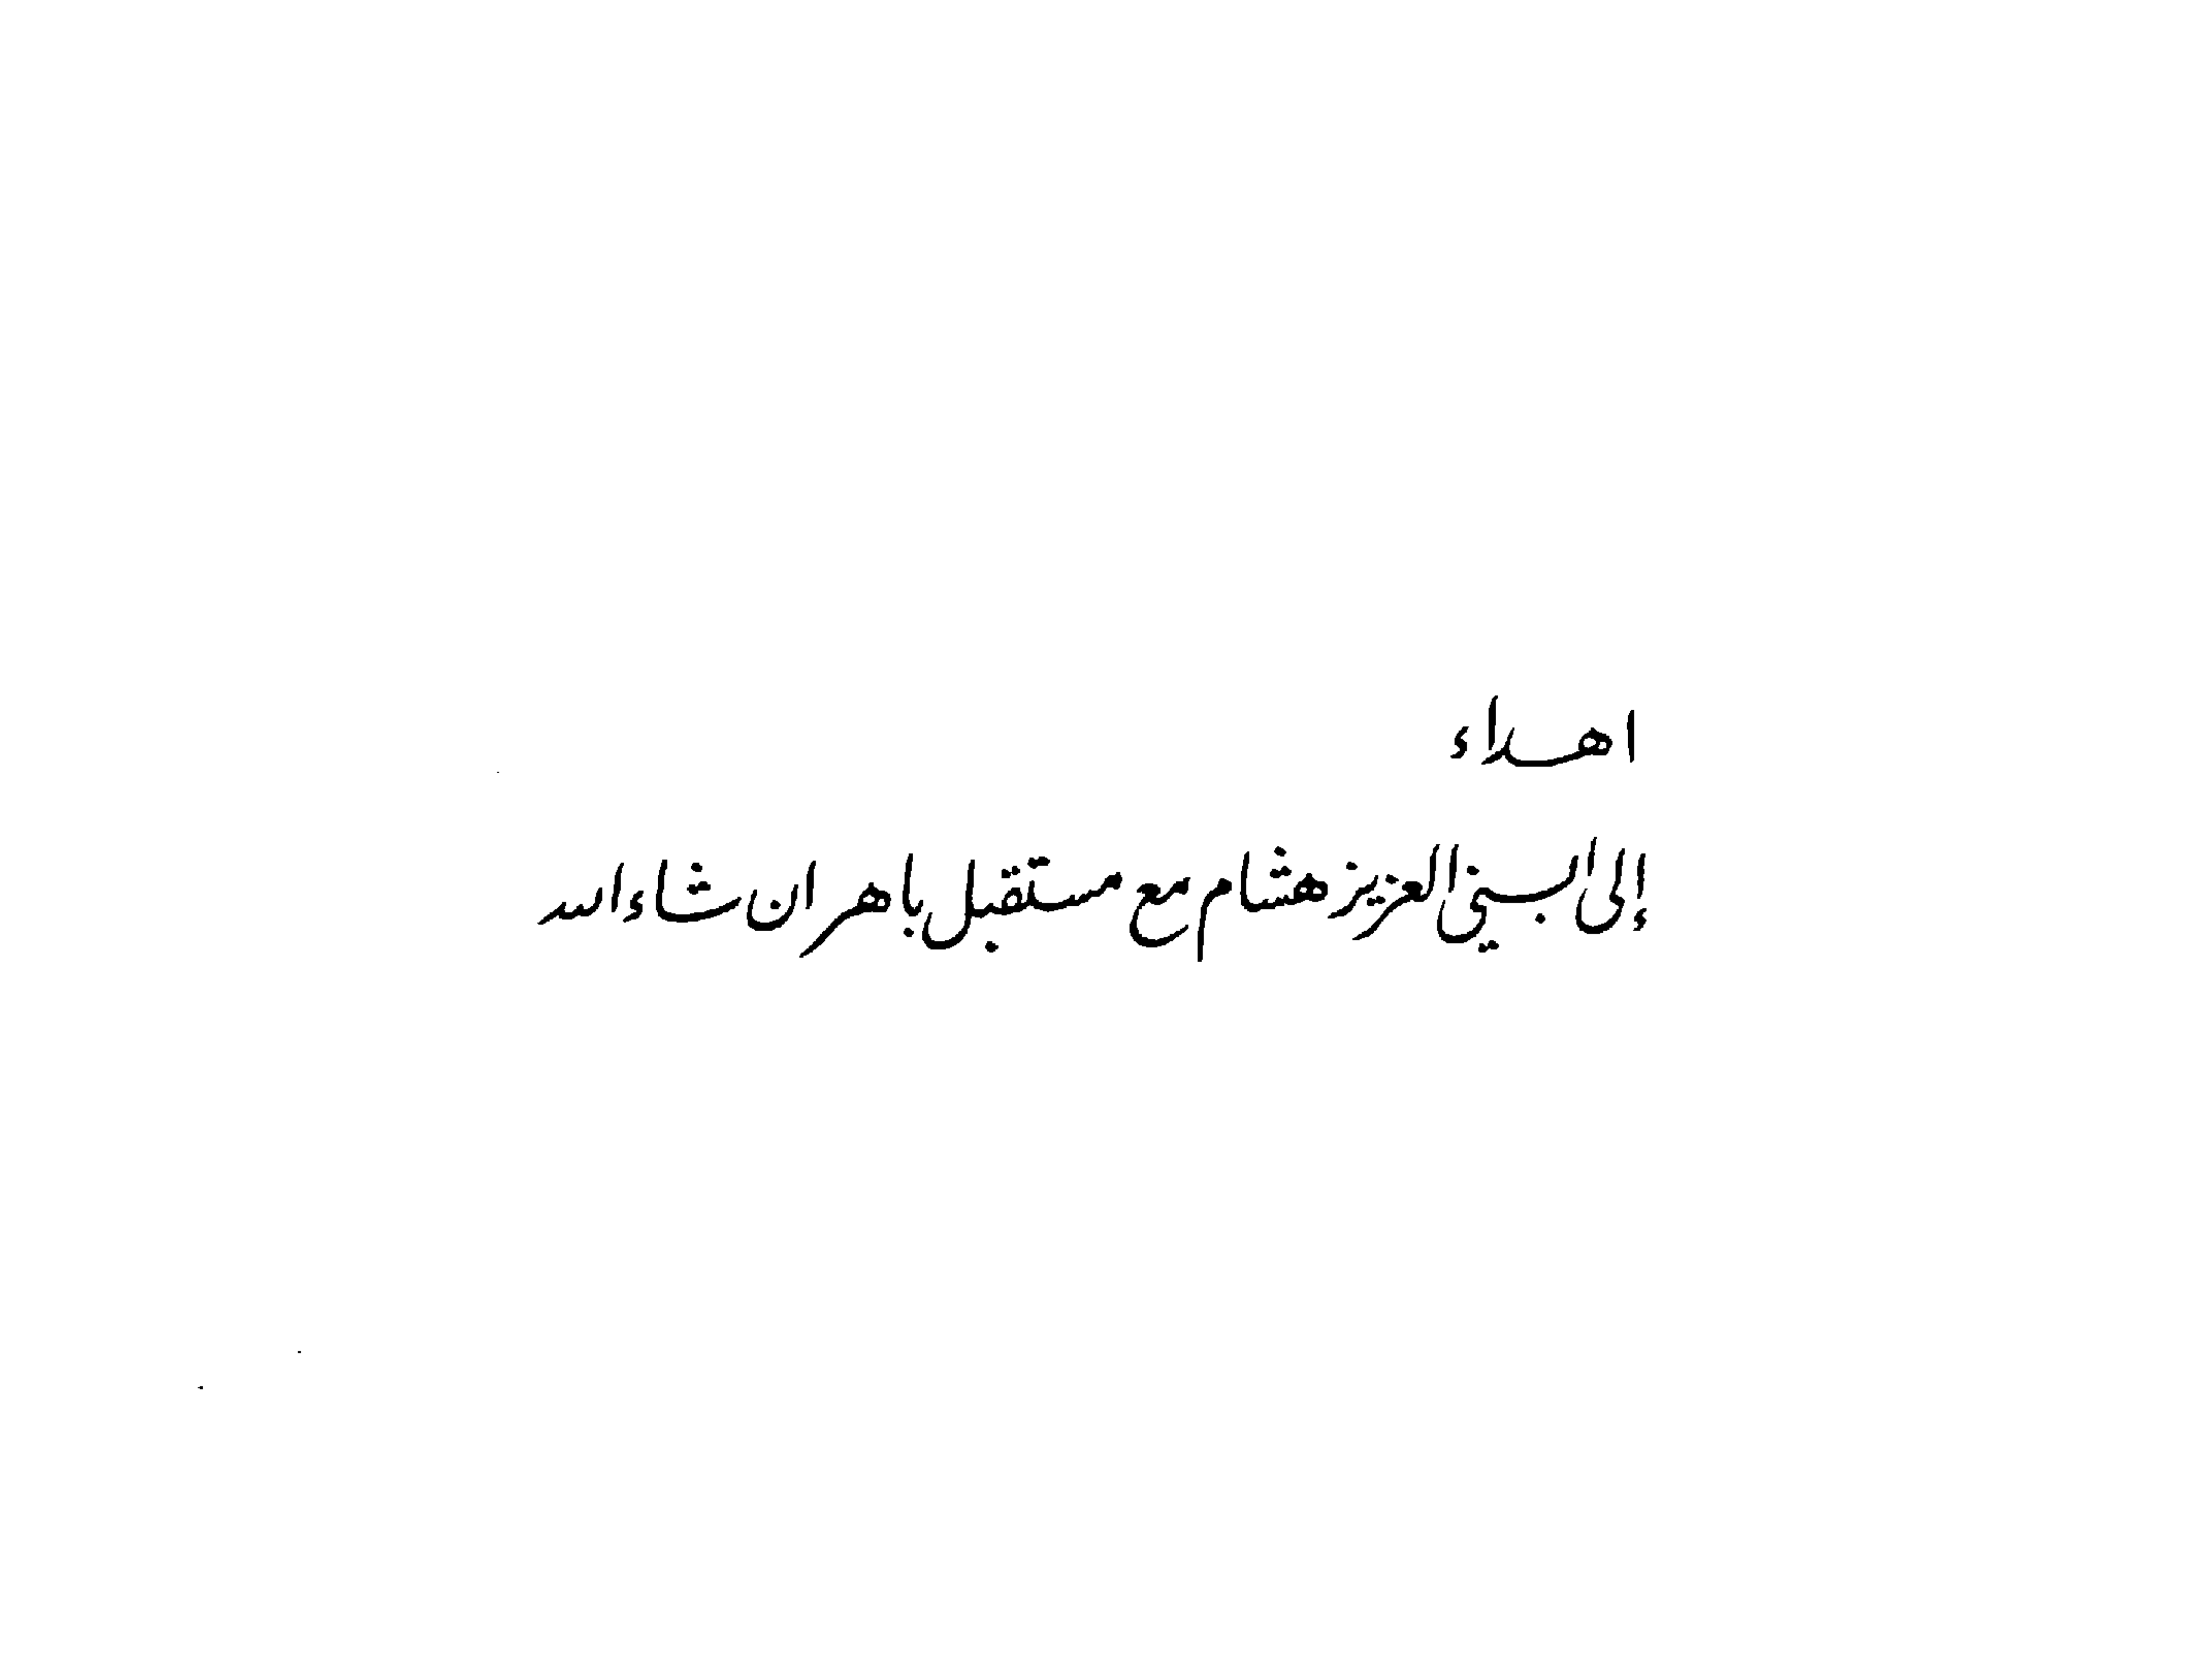 اهداء
إلى ابني العزيز هشام مع مستقبل باهر ان شاء الله